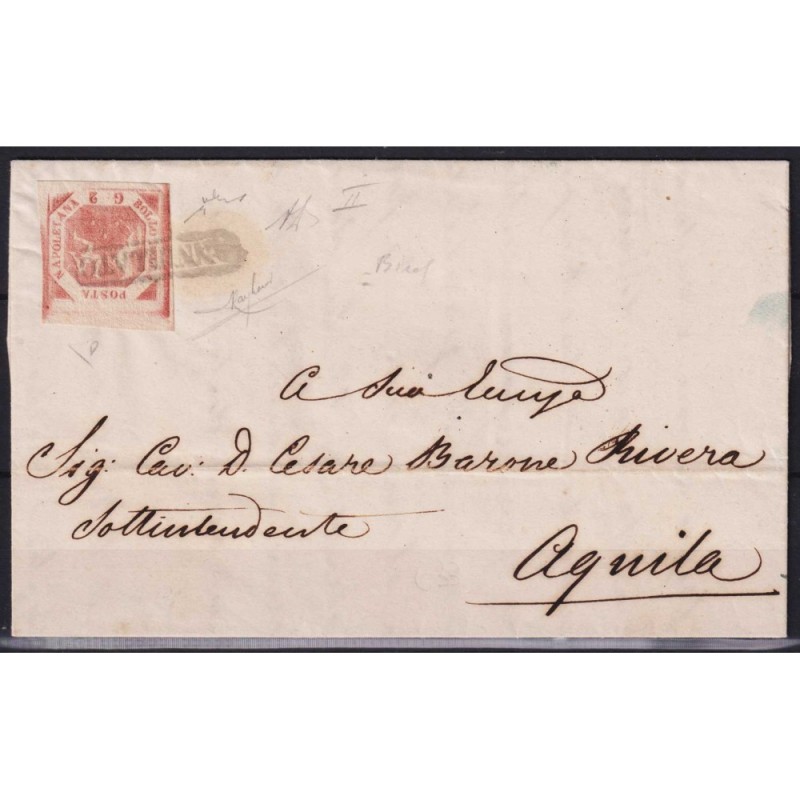 G. 2
BOLLO
NAPOLETANA
POSTA
ANNULLATO
II
A Sua
Sig: Cav: D. Cesare Barone Rivera
Sottintendente
Aquila